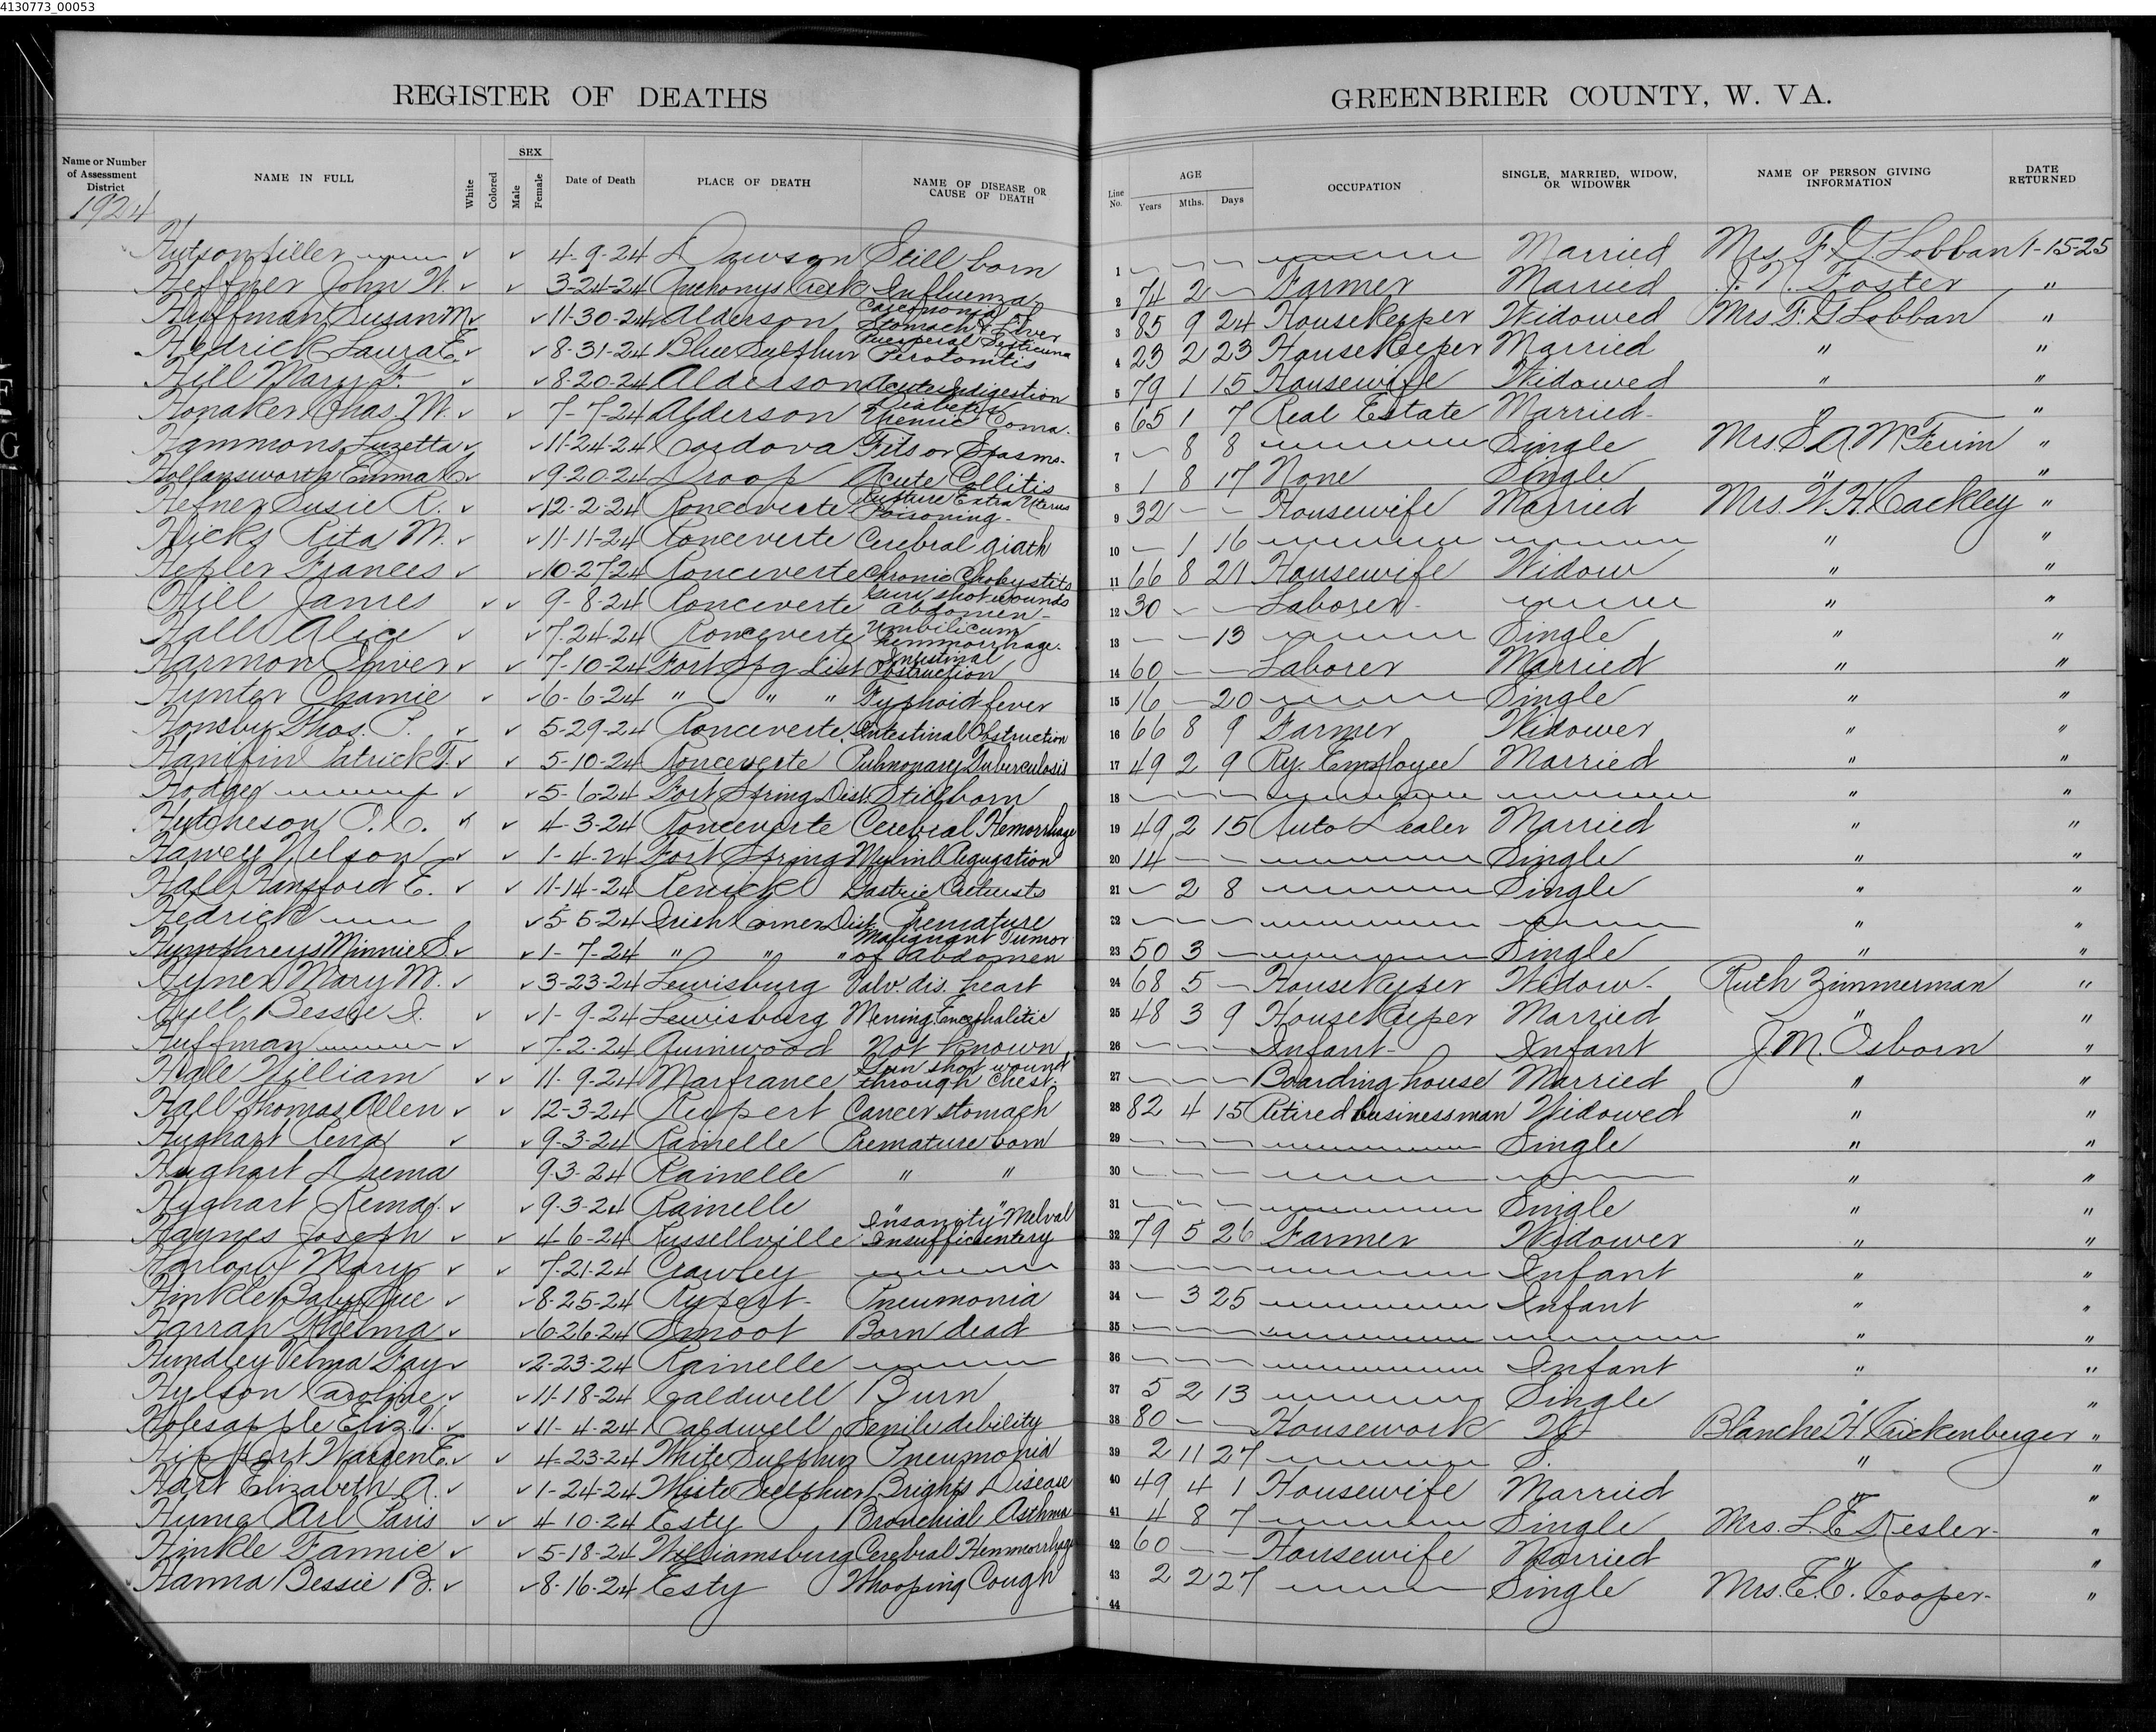 4130773_00053
REGISTER OF DEATHS
GREENBRIER COUNTY, W. VA.
Name or Number of Assessment District
NAME IN FULL
White
Colored
SEX
Male
Female
Date of Death
PLACE OF DEATH
NAME OF DISEASE OR CAUSE OF DEATH
Line No.
AGE
Years
Mths.
Days
OCCUPATION
SINGLE, MARRIED, WIDOW, OR WIDOWER
NAME OF PERSON GIVING INFORMATION
DATE RETURNED
1924
4-9-24 Dawson Still born 1 Married Mrs. F. G. Lobban 1-15-25
Heffner John W. 3-24-24 Anthonys Creek Influenza 2 74 2 Farmer Married J. N. Foster "
Huffman Susan M. 11-30-24 Alderson Carcinoma Stomach & Liver 3 85 9 24 Housekeeper Widowed Mrs F. G Lobban "
Hedrick Laura E. 8-31-24 Blue Sulphur Puerperal 4 23 2 23 Housekeeper Married " "
Hill Mary F. 8-20-24 Alderson Acute Indigestion 5 79 1 15 Housewife Widowed " "
Honaker Chas. M. 7-7-24 Alderson Diabetes Coma. 6 65 1 7 Real Estate Married "
Hammons Luzetta 11-24-24 Cordova Fits or Spasms. 7 8 8 Single Mrs. S. A. "
Hollansworth Emma 9-20-24 Droop Acute Collitis 8 1 8 17 None Single " "
Hefner Susie R. 12-2-24 Ronceverte Rupture Extra Uterus Poisoning 9 32 Housewife Married Mrs. W. H. Cackley "
Hicks Rita M. 11-11-24 Ronceverte Cerebral 10 1 16 " "
Hepler Frances 10-27-24 Ronceverte Chronic 11 66 8 21 Housewife Widow " "
Hill James 9-8-24 Ronceverte Gun shot wounds abdomen 12 30 Laborer " "
Hall Alice 7-24-24 Ronceverte Umbilicum hemmorrhage. 13 13 Single " "
Harmon Oliver 7-10-24 Fort Spg Dist Intestinal Obstruction 14 60 Laborer Married " "
Hunter 6-6-24 " " " Typhoid fever 15 16 20 Single " "
Honsby Thos. P. 5-29-24 Ronceverte Intestinal Obstruction 16 66 8 9 Farmer Widower " "
Hanifin Patrick T. 5-10-24 Ronceverte Pulmonary Tuberculosis 17 49 2 9 Ry. Employee Married " "
Hodges 5-6-24 Fort Spring Dist. Stillborn 18 " "
Hutcheson O. C. 4-3-24 Ronceverte Cerebral Hemorrhage 19 49 2 15 Auto Dealer Married " "
Harvey Nelson 1-4-24 Fort Spring 20 14 Single " "
Hall Hansford E. 11-14-24 Renick Gastric 21 2 8 Single " "
Hedrick 5-5-24 Irish Corner Dist. Premature 22 " "
Humphreys Minnie S. 1-7-24 " " " Malignant Tumor of Abdomen 23 50 3 Single " "
Mary M. 3-23-24 Lewisburg Valv. dis. heart 24 68 5 Housekeeper Widow Ruth Zimmerman "
Hull Bessie I. 1-9-24 Lewisburg 25 48 3 9 Housekeeper Married " "
Huffman 7-2-24 Quinwood Not Known 26 Infant Infant J. M. Osborn "
William 11-9-24 Marfrance Gun shot wound through chest. 27 Boarding house Married " "
Hall Thomas Allen 12-3-24 Rupert Cancer stomach 28 82 4 15 Retired businessman Widowed " "
Hughart Rena 9-3-24 Rainelle Premature born 29 Single " "
Hughart Drema 9-3-24 Rainelle " " 30 " "
Hughart Rema 9-3-24 Rainelle " " 31 Single " "
Haynes Joseph 4-6-24 Russellville Insanity 32 79 5 26 Farmer Widower " "
Mary 7-21-24 Crawley 33 Infant " "
Hinkle Baby Sue 8-25-24 Rupert Pneumonia 34 3 25 Infant " "
Harrah Thelma 6-26-24 Smoot Born dead 35 " "
Hundley Velma Fay 2-23-24 Rainelle 36 Infant " "
Hylson Caroline 11-18-24 Caldwell Burn 37 5 2 13 Single " "
Holesapple Eliz. V. 11-4-24 Caldwell Senile debility 38 80 Housework Blanche H. "
Warren E. 4-23-24 White Sulphur Pneumonia 39 2 11 27 S. " "
Hart Elizabeth A. 1-24-24 White Sulphur Brights Disease 40 49 4 1 Housewife Married " "
Arl Paris 4 10-24 Esty Bronchial Asthma 41 4 8 7 Single Mrs. L. E. Kesler "
Hinkle Fannie 5-18-24 Williamsburg Cerebral Hemmorrhage 42 60 Housewife Married " "
Hanna Bessie B. 8-16-24 Esty Whooping Cough 43 2 2 27 Single Mrs. E. C. Cooper "
44